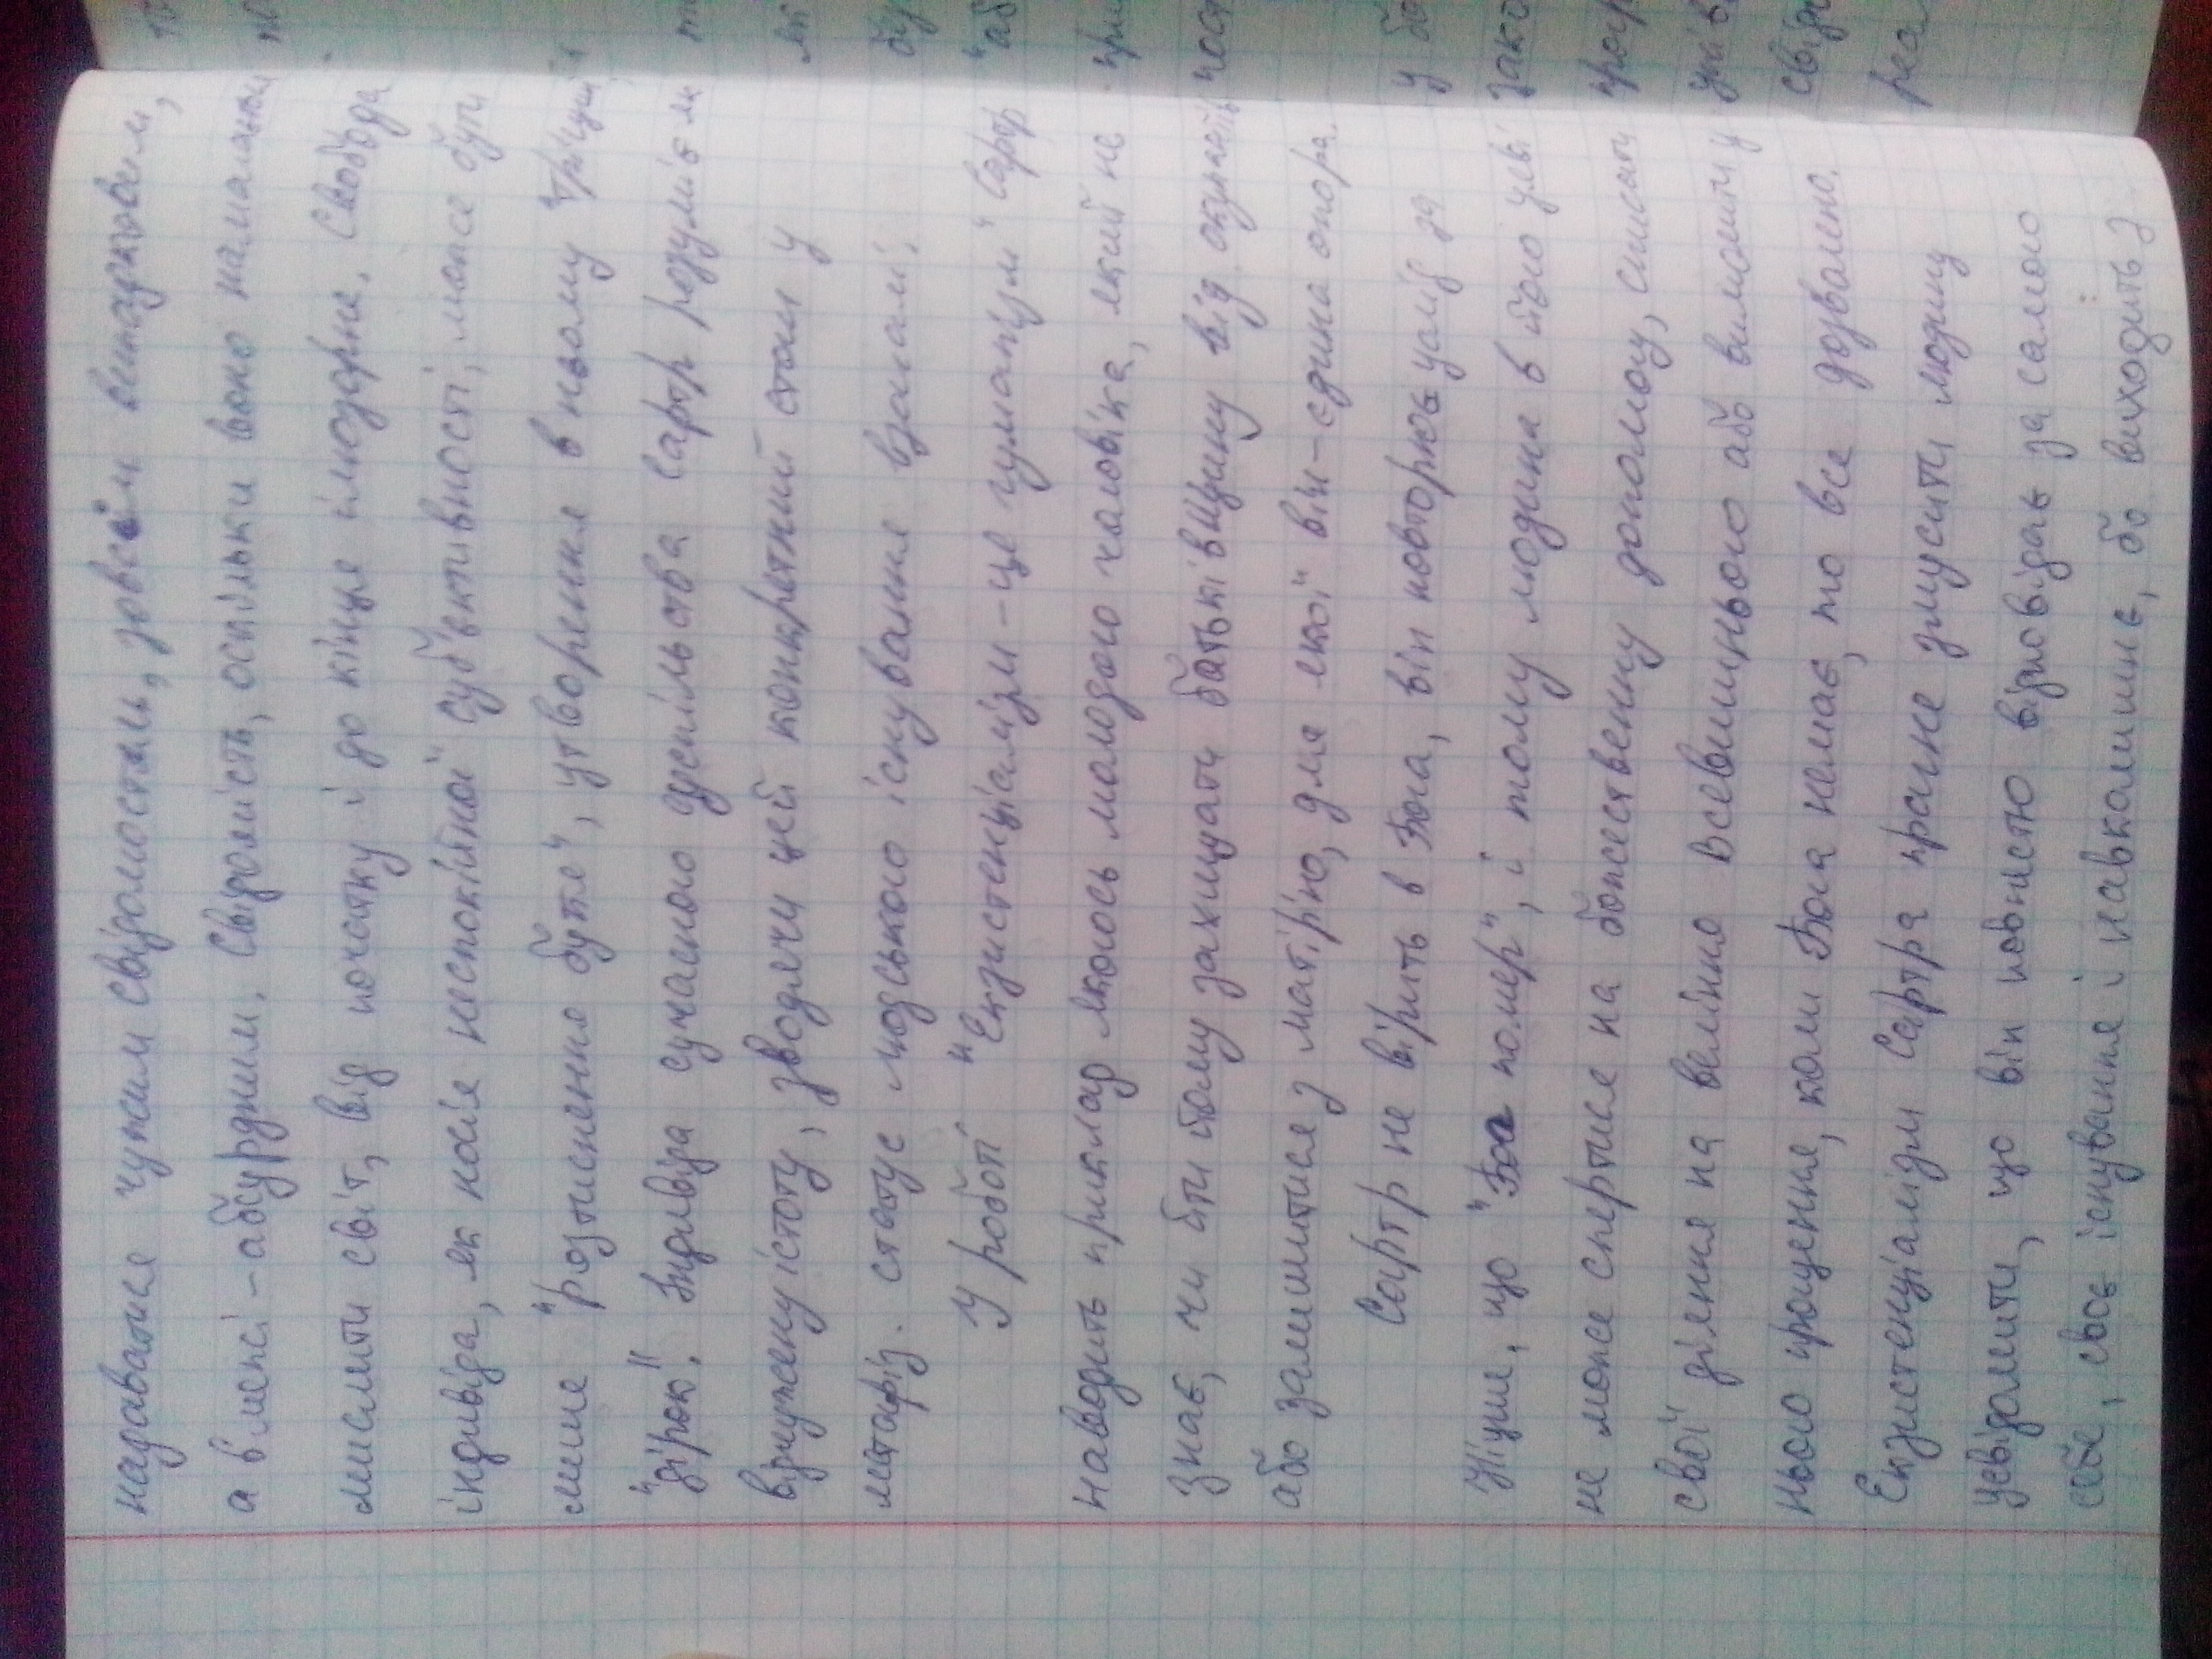 надаватися чужим свідомостям, зовсім випадковим,
а в межі - абсурдним. Свідомість, оскільки воно намагається
мислити світ, від початку і до кінця ілюзорне. Свобода
індивіда, як носія неспокійної суб'єктивності, може бути
лише "розтиснення буття", утворення в ньому "тріщин",
"дірок". Індивіда сучасного суспільства Сартр розуміє як
відчужену істоту, зводячи цей конкретний стан у
метафіз. статус людського існування взагалі.
У роботі "Екзистенціалізм - це гуманізм" Сартр
наводить приклад якогось молодого чоловіка, який не
знає, чи йти йому захищати батьківщину від окупантів
або залишитися з матір'ю, для якої він - єдина опора.
Сартр не вірить в Бога, він повторює услід за
Ніцше, що "Бог помер", і тому людина в його уяві
не може спертися на божественну допомогу, списати
свої діяння на веління Всевишнього або вимолити у
нього прощення, коли Бога немає, то все дозволено.
Екзистенціалізм Сартра прагне змусити людину
усвідомити, що він повністю відповідає за самого
себе, своє існування і навколишнє, бо виходить з